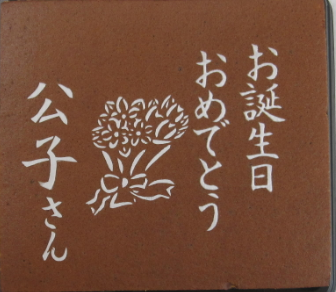 お誕生日
おめでとう
公子さん